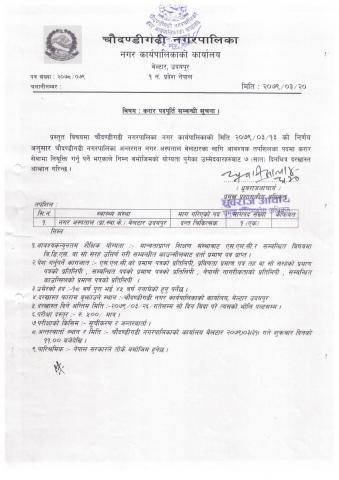 चौदण्डीगढी नगरपालिका
नगर कार्यपालिकाको कार्यालय
बेल्टार, उदयपुर
१ नं. प्रदेश नेपाल
पत्र संख्या : २०७८/०७९
चलानीनम्बर :
मिति : २०७९/०३/२०
विषय : करार पदपूर्ति सम्बन्धी सूचना ।
प्रस्तुत विषयमा चौदण्डीगढी नगरपालिका नगर कार्यपालिकाको मिति २०७९/०३/१३ को निर्णय
अनुसार चौदण्डीगढी नगरपालिका अन्तरगत नगर अस्पताल बेल्टारका लागि आवश्यक तपशिलका पदमा करार
सेवामा नियुक्ति गर्नु पर्ने भएकाले निम्न बमोजिमको योग्यता पुगेका उम्मेदवारहरुबाट ७ (सात) दिनभित्र दरखास्त
आव्हान गरिन्छ ।
(ध्रुवराजआचार्य)
ध्रुवराज आचार्य
प्रमुख प्रशासकीय अधिकृत
तपशिल :
सि.नं. स्वास्थ्य संस्था माग गरिएको पद मागपद संख्या कैफियत
१. नगर अस्पताल (प्रा.स्वा.के.) बेल्टार उदयपुर दन्त चिकित्सक १ (एक)
१.आवश्यकन्युनतम शैक्षिक योग्यता :- मान्यताप्राप्त शिक्षण संस्थाबाट एस.एस.सी.र सम्बन्धित विषयमा
बि.डि.एस. वा सो सरह उतिर्ण गरी सम्बन्धीत काउन्सीलबाट दर्ता प्रमाण पत्र प्राप्त ।
२.पेश गर्नुपर्ने कागजात :- एस.एल.सी.को प्रमाण पत्रको प्रतिलिपी, प्रविणता प्रमाण पत्र तह वा सो सरहको प्रमाण
पत्रको प्रतिलिपी, सम्बन्धित पदको प्रमाण पत्रको प्रतिलिपी, नेपाली नागरीकताको प्रतिलिपी , सम्बन्धित
काउन्सिलको प्रमाण पत्रको प्रतिलिपी ।
३.उमेरको हद :-१८ बर्ष पुरा भई ४५ बर्ष ननाघेको हुनु पर्नेछ ।
४.दरखास्त फाराम बुझाउने स्थान :-चौदण्डीगढी नगरपालिका नगर कार्यपालिकाको कार्यालय, बेल्टार उदयपुर
५.दरखास्त दिने अन्तिम मिति :-२०७९/०३/२६/गतेसम्म सो दिन बिदा परे त्यसको भोलि पल्टसम्म ।
६.परीक्षा दस्तुर :- रु. ५००/ मात्र ।
७.परीक्षाको किसिम :- सूचीकरण र अन्तरवार्ता ।
८.अन्तरवार्ता स्थान र मिति :- चौदण्डीगढी नगरपालिकाको कार्यालय बेल्टार २०७९/०३/३१ गते शुक्रवार दिनको
११.०० बजेदेखि ।
९.पारिश्रमिक :- नेपाल सरकारले तोके बमोजिम हुनेछ ।